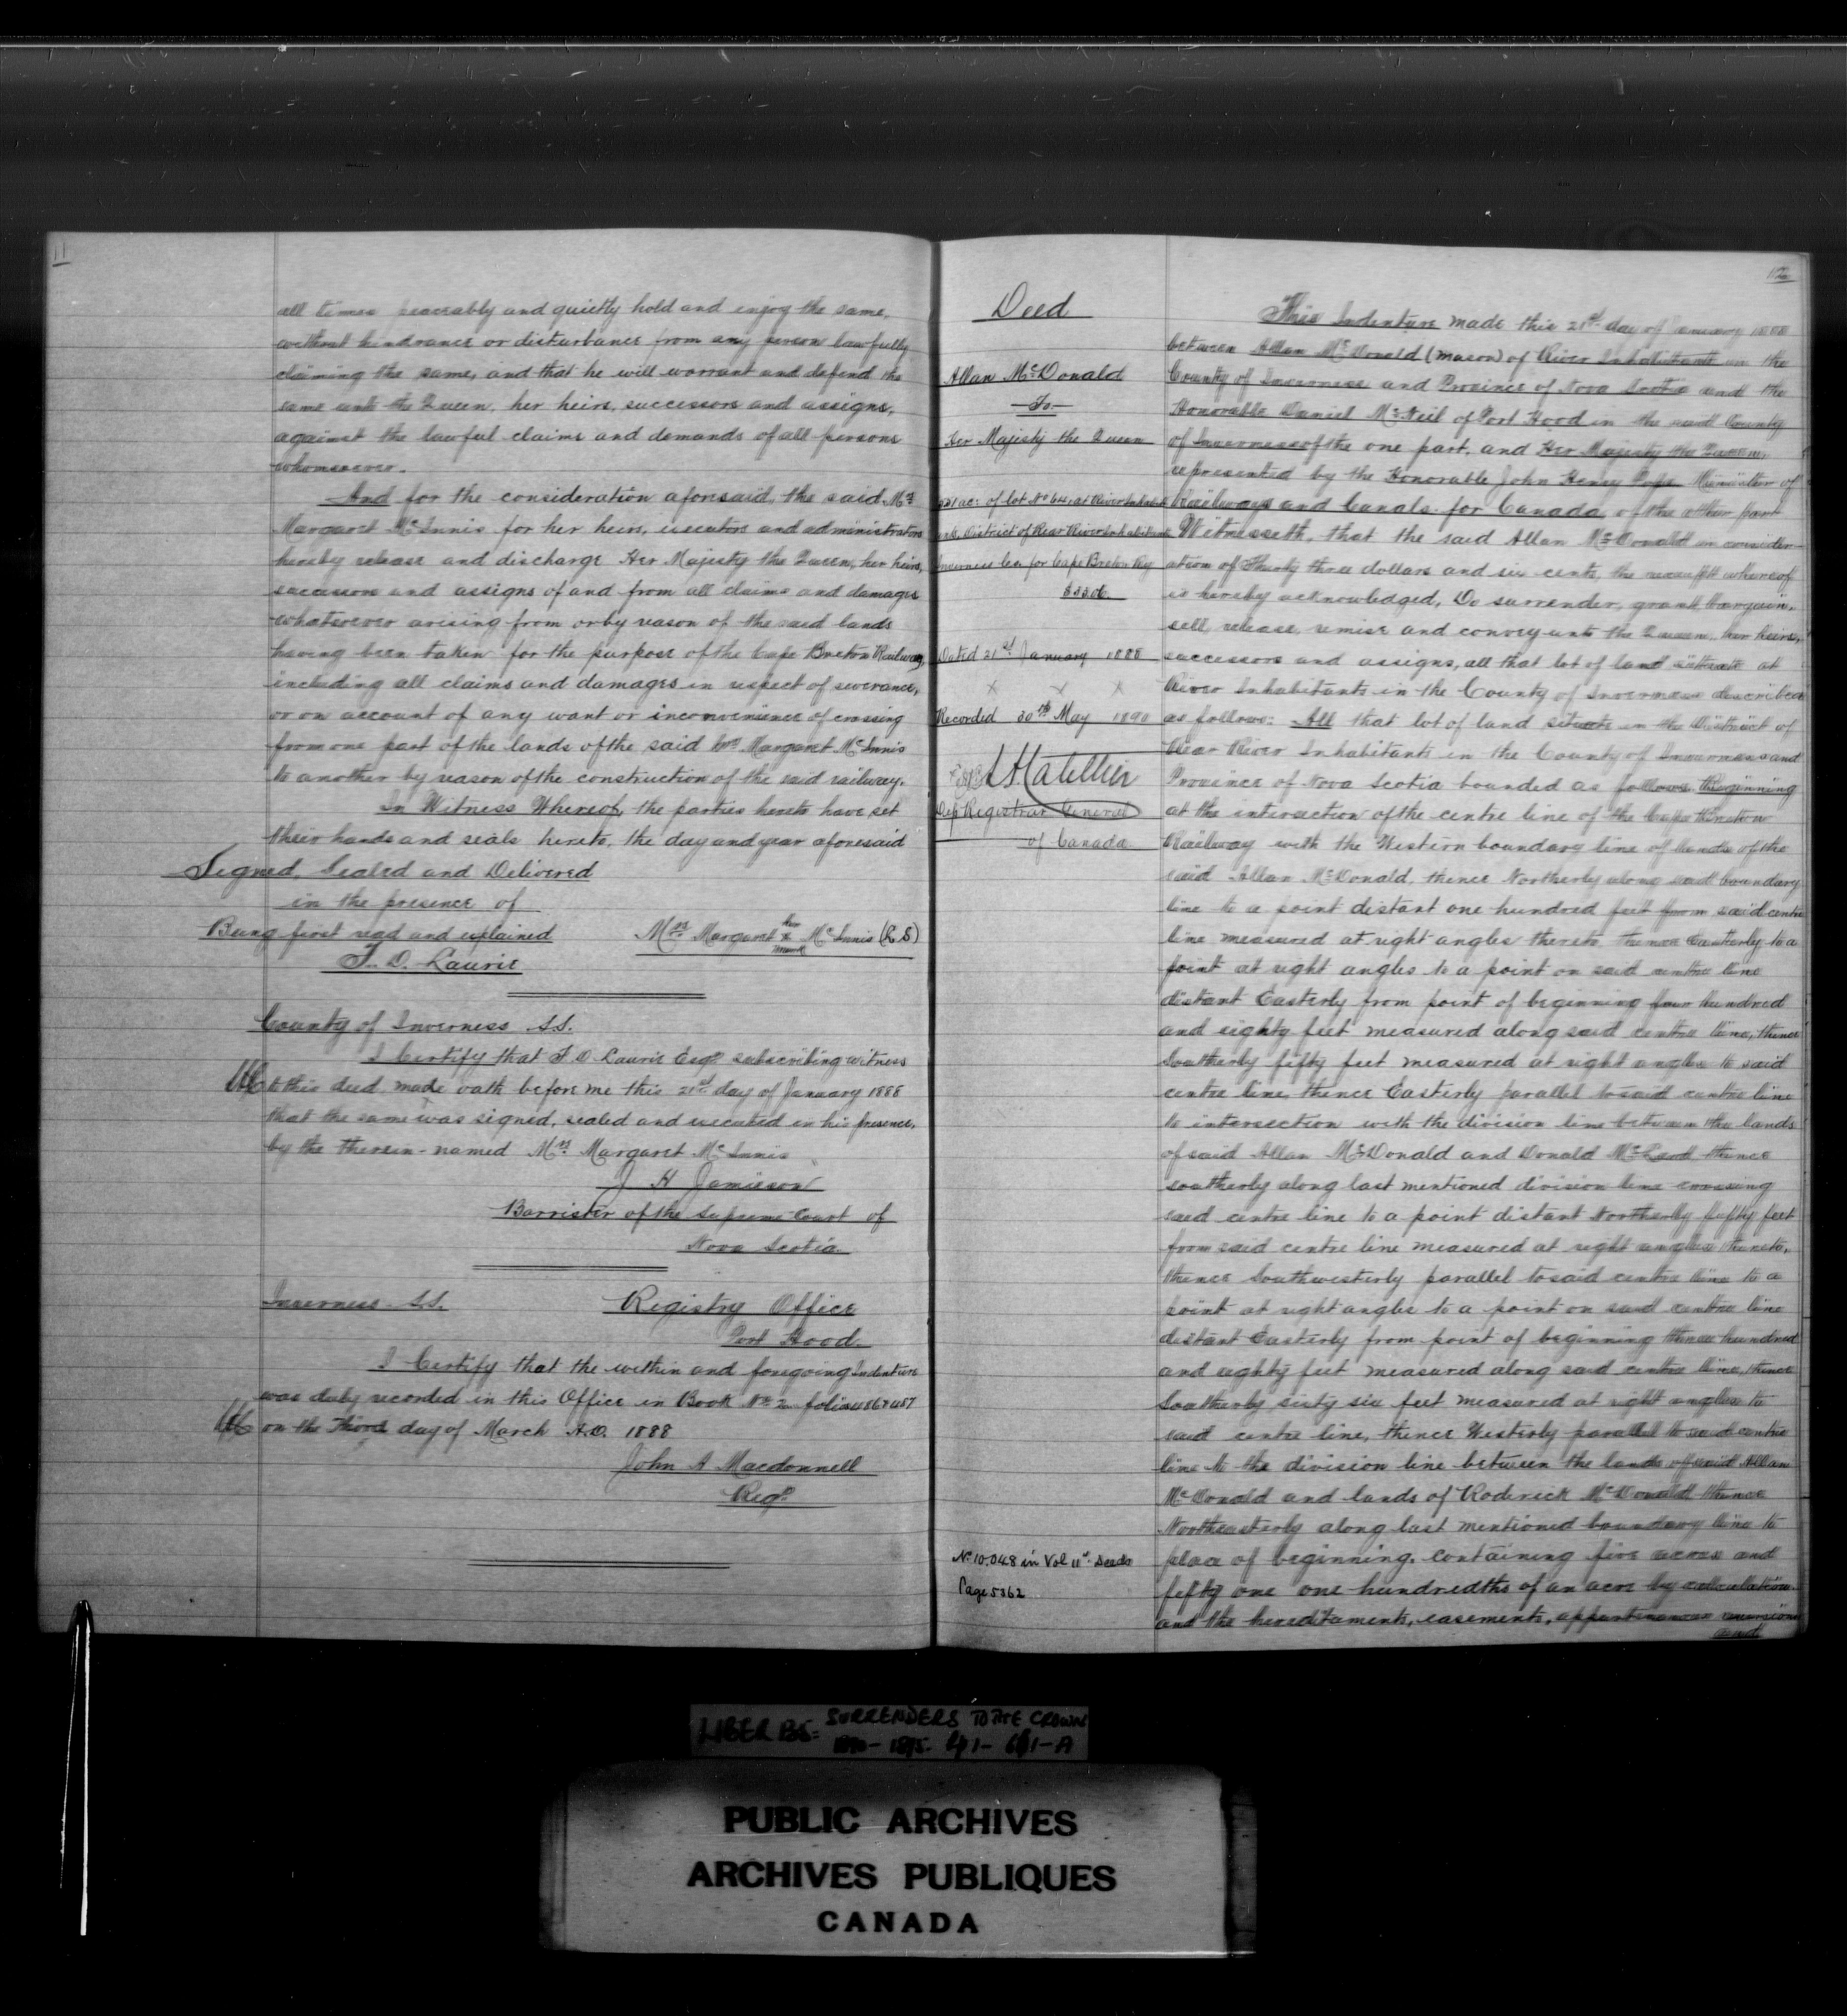 11
all times peaceably and quietly hold and enjoy the same,
without hindrance or disturbance from any person lawfully
claiming the same, and that he will warrant and defend the
same unto the Queen, her heirs, successors and assigns,
against the lawful claims and demands of all persons
whomsoever.
And for the consideration aforesaid, the said Mrs
Margaret McInnis for her heirs, executors and administrators
hereby release and discharge Her Majesty the Queen, her heirs,
successors and assigns of and from all claims and damages
whatsoever arising from or by reason of the said lands
having been taken for the purpose of the Cape Breton Railway,
including all claims and damages in respect of severance,
or on account of any want or inconvenience of crossing
from one part of the lands of the said Mrs Margaret McInnis
to another by reason of the construction of the said railway.
In Witness Whereof, the parties hereto have set
their hands and seals hereto, the day and year aforesaid
Signed, Sealed and Delivered
in the presence of
Being first read and explained
Mrs Margaret her x mark McInnis (L.S)
F. D. Laurie
County of Inverness S.S.
I Certify that F. D. Laurie Esqr subscribing witness
to this deed made oath before me this 21st day of January 1888
that the same was signed, sealed and executed in his presence,
by the therein-named Mrs Margaret McInnis
J H Jamieson
Barrister of the Supreme Court of
Nova Scotia
Inverness S.S. Registry Office
Port Hood
I Certify that the within and foregoing Indenture
was duly recorded in this Office in Book No 2 folios 486 & 487
on the Third day of March A.D. 1888
John A Macdonnell
Regr
12
Deed
Allan McDonald
To
Her Majesty the Queen
ac: of lot No 64, at River Inhabit
District of Rear River Inhabitants
Inverness Co. for Cape Breton Ry
$33.06
Dated 21st January 1888
x x x
Recorded 30th May 1890
Dep Registrar General
of Canada
No 10,048 in Vol 11 Deeds
Page 5362
This Indenture made this 21st day of January 1888
between Allan McDonald (mason) of River Inhabitants in the
County of Inverness and Province of Nova Scotia and the
Honorable Daniel McNeil of Port Hood in the said County
of Inverness of the one part, and Her Majesty the Queen,
represented by the Honorable John Henry Pope Minister of
Railways and Canals for Canada, of the other part
Witnesseth, that the said Allan McDonald in consider-
ation of Thirty three dollars and six cents, the receipt whereof
is hereby acknowledged, Do surrender, grant bargain,
sell, release, remise and convey unto the Queen, her heirs,
successors and assigns, all that lot of land situate at
River Inhabitants in the County of Inverness described
as follows: All that lot of land situate in the District of
Rear River Inhabitants in the County of Inverness and
Province of Nova Scotia bounded as follows, Beginning
at the intersection of the centre line of the Cape Breton
Railway with the Western boundary line of lands of the
said Allan McDonald, thence Northerly along said boundary
line to a point distant one hundred feet from said centre
line measured at right angles thereto thence Easterly to a
point at right angles to a point on said centre line
distant Easterly from point of beginning four hundred
and eighty feet measured along said centre line, thence
Southerly fifty feet measured at right angles to said
centre line, thence Easterly parallel to said centre line
to intersection with the division line between the lands
of said Allan McDonald and Donald McLeod thence
southerly along last mentioned division line crossing
said centre line to a point distant Northerly fifty feet
from said centre line measured at right angles thereto,
thence Southwesterly parallel to said centre line to a
point at right angles to a point on said centre line
distant Easterly from point of beginning three hundred
and eighty feet measured along said centre line, thence
Southerly sixty six feet measured at right angles to
said centre line, thence Westerly parallel to said centre
line to the division line between the lands of said Allan
McDonald and lands of Roderick McDonald thence
Northeasterly along last mentioned boundary line to
place of beginning, containing five acres and
fifty one one hundredths of an acre by calculation
and the hereditaments, easements, appurtenances reversions
and
LIBER 135- SURRENDERS TO THE CROWN
PUBLIC ARCHIVES
ARCHIVES PUBLIQUES
CANADA